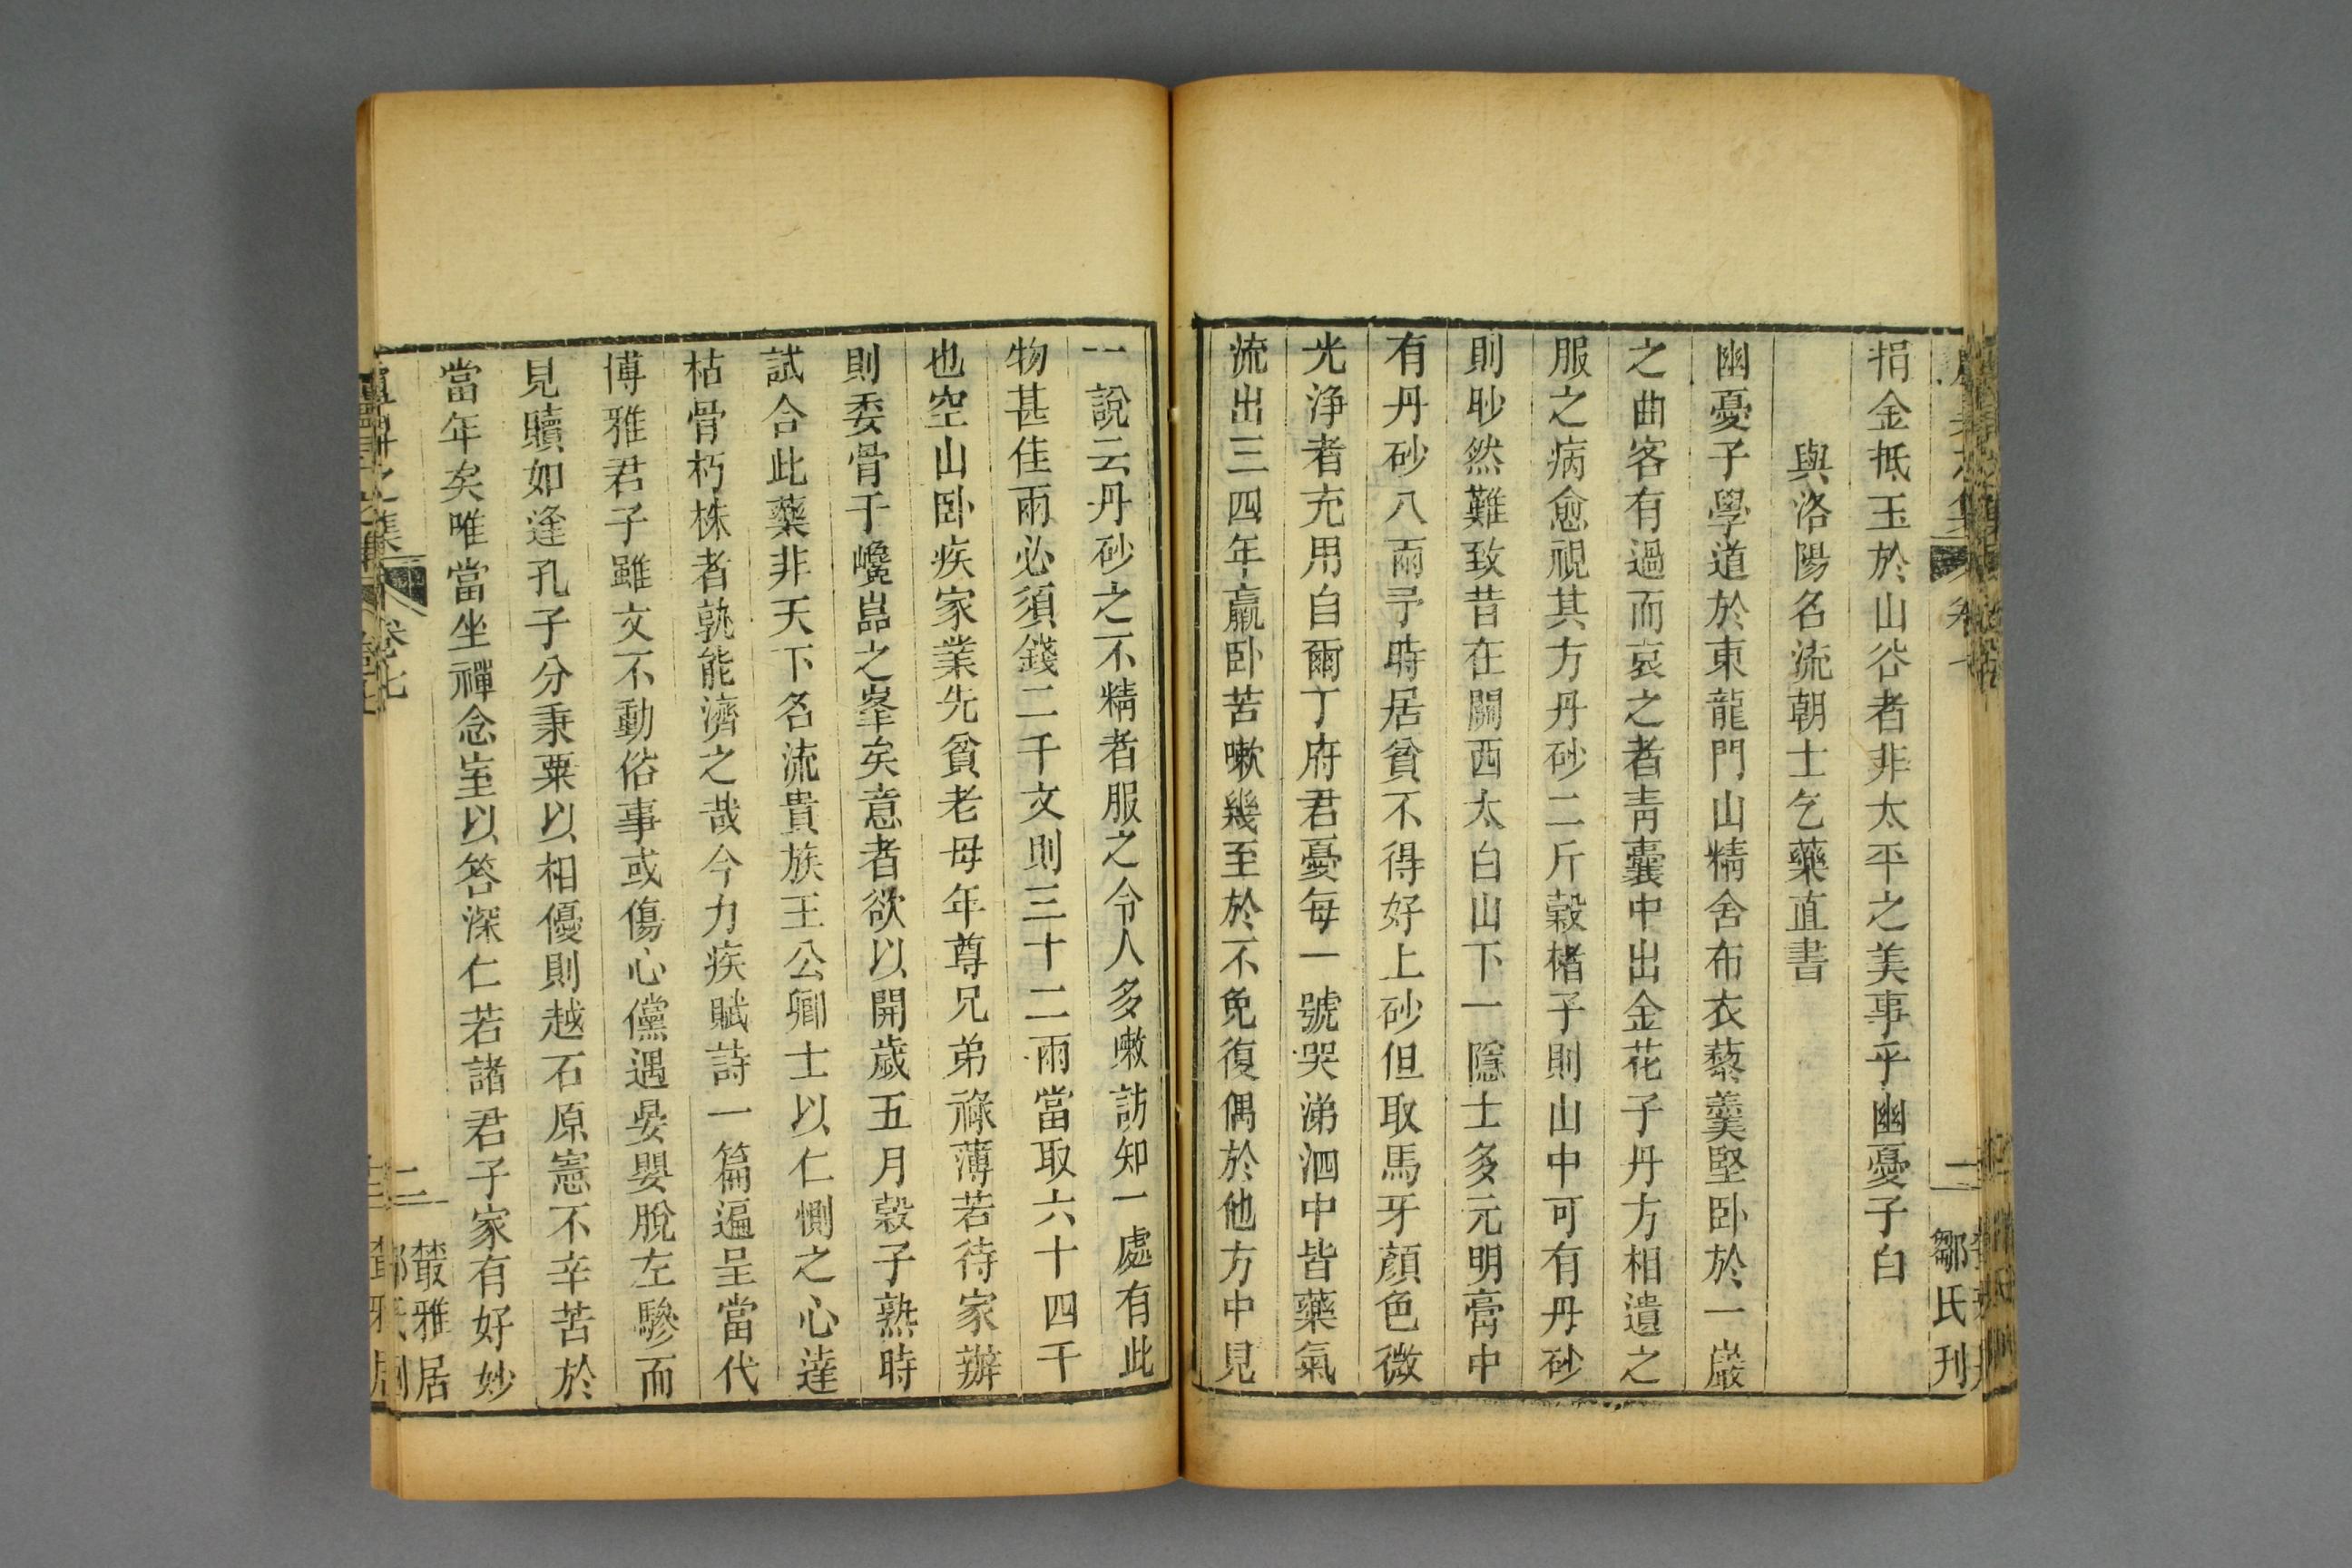 捐金抵玉於山谷者非太平之美事乎幽憂子白
與洛陽名流朝士乞藥直書
幽憂子學道於東龍門山精舍布衣藜羹堅卧於一巖
之曲客有過而哀之者青囊中出金花子丹方相遺之
服之病愈視其方丹砂二斤穀楮子則山中可有丹砂
則眇然難致昔在關西太白山下一隱士多元明膏中
有丹砂八兩予時居貧不得好上砂但取馬牙顏色微
光淨者充用自爾丁府君憂每一號哭涕泗中皆藥氣
流出三四年羸卧苦嗽幾至於不免復偶於他方中見
一說云丹砂之不精者服之令人多嗽訪知一處有此
物甚佳兩必須錢二千文則三十二兩當取六十四千
也空山卧疾家業先貧老母年尊兄弟祿薄若待家辦
則委骨于巉嵓之峯矣意者欲以開歲五月穀子熟時
試合此藥非天下名流貴族王公卿士以仁惻之心達
枯骨朽株者孰能濟之哉今力疾賦詩一篇遍呈當代
博雅君子雖文不動俗事或傷心儻遇晏嬰脫左驂而
見贖如逢孔子分秉粟以相優則越石原憲不辛苦於
當年矣唯當坐禪念室以答深仁若諸君子家有好妙
卷七
二
叢雅居
鄒氏刊